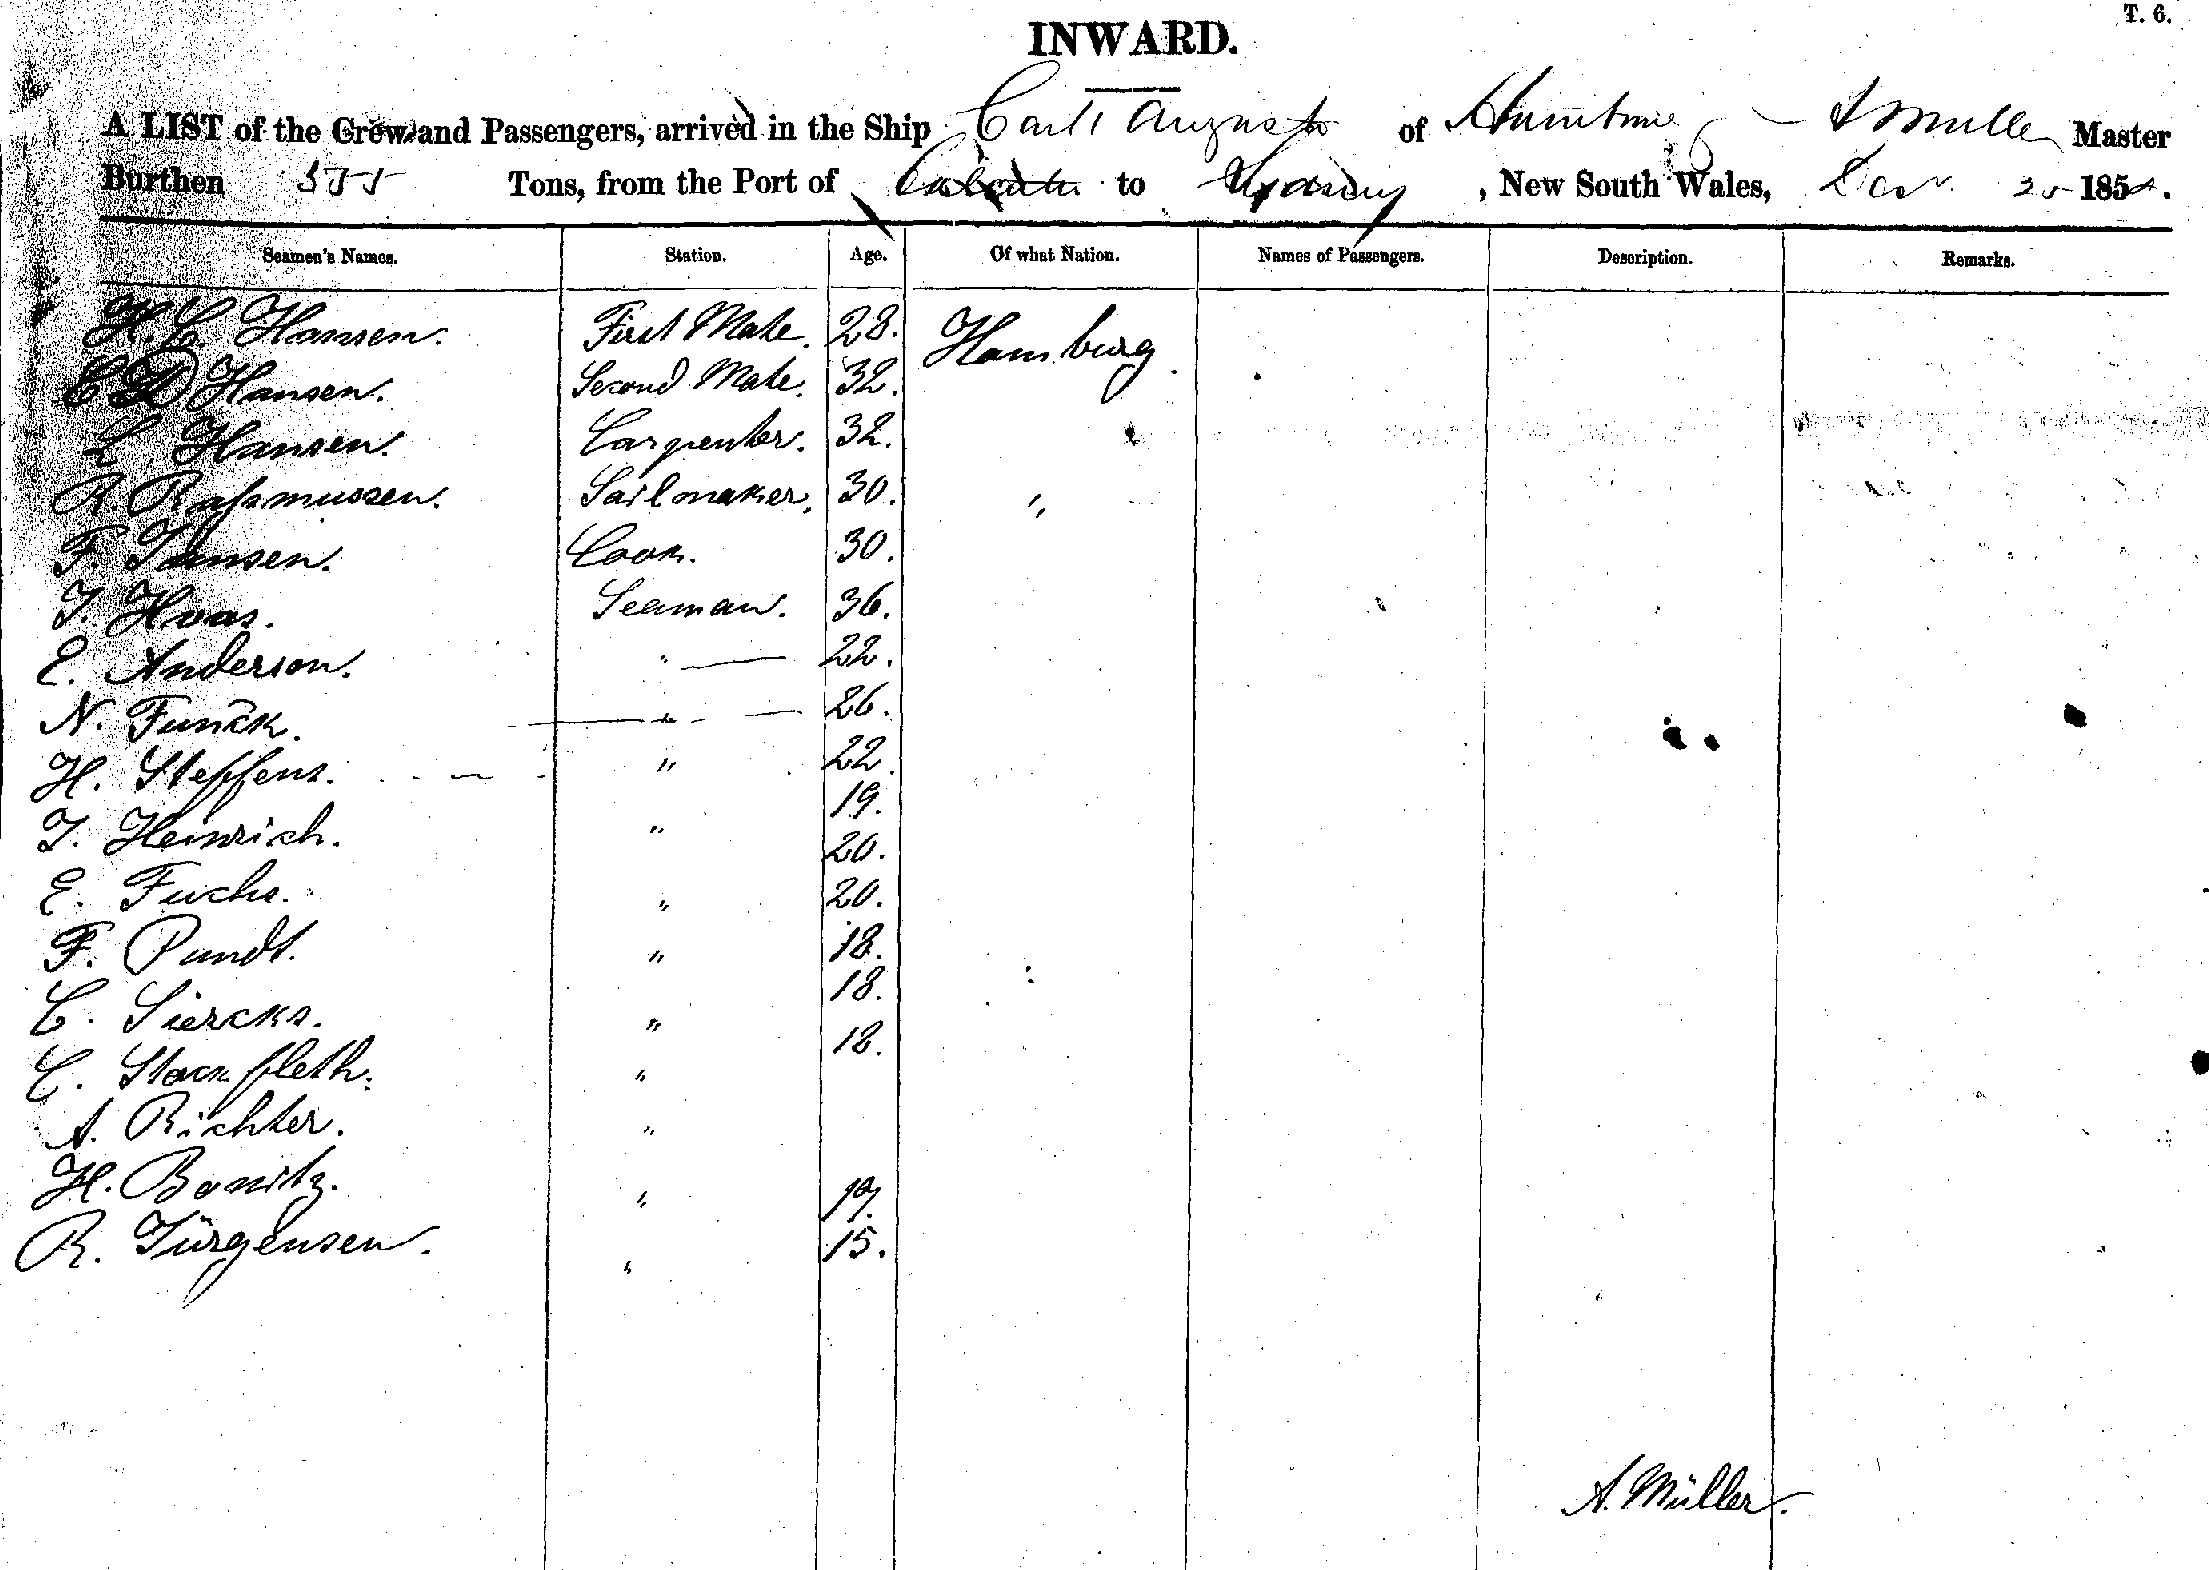 T. 6.
INWARD.
A LIST of the Crew and Passengers, arrived in the Ship Carl Augusto of Hamburg A Muller Master
Burthen 355 Tons, from the Port of Calcutta to Sydney, New South Wales, 25 185
Seamen's Names. Station. Age. Of what Nation. Names of Passengers. Description. Remarks.
H. C. Hansen. First Mate. 28. Hamburg.
C D Hansen. Second Mate. 32.
L. Hansen. Carpenter. 32.
R Rassmussen. Sailmaker. 30. "
F. Jansen. Cook. 30.
J. Haas. Seaman. 36.
E. Anderson. " 22.
N. Funck. " 26.
H. Steffens. " 22.
J. Heinrich. " 19.
E. Fuchs. " 20.
F. Pundt. " 20.
C. Siercks. " 18.
C. Stockfleth. " 18.
A. Richter. " 18.
H. Bonitz. " 19.
R. Jürgensen. " 15.
A. Müller.